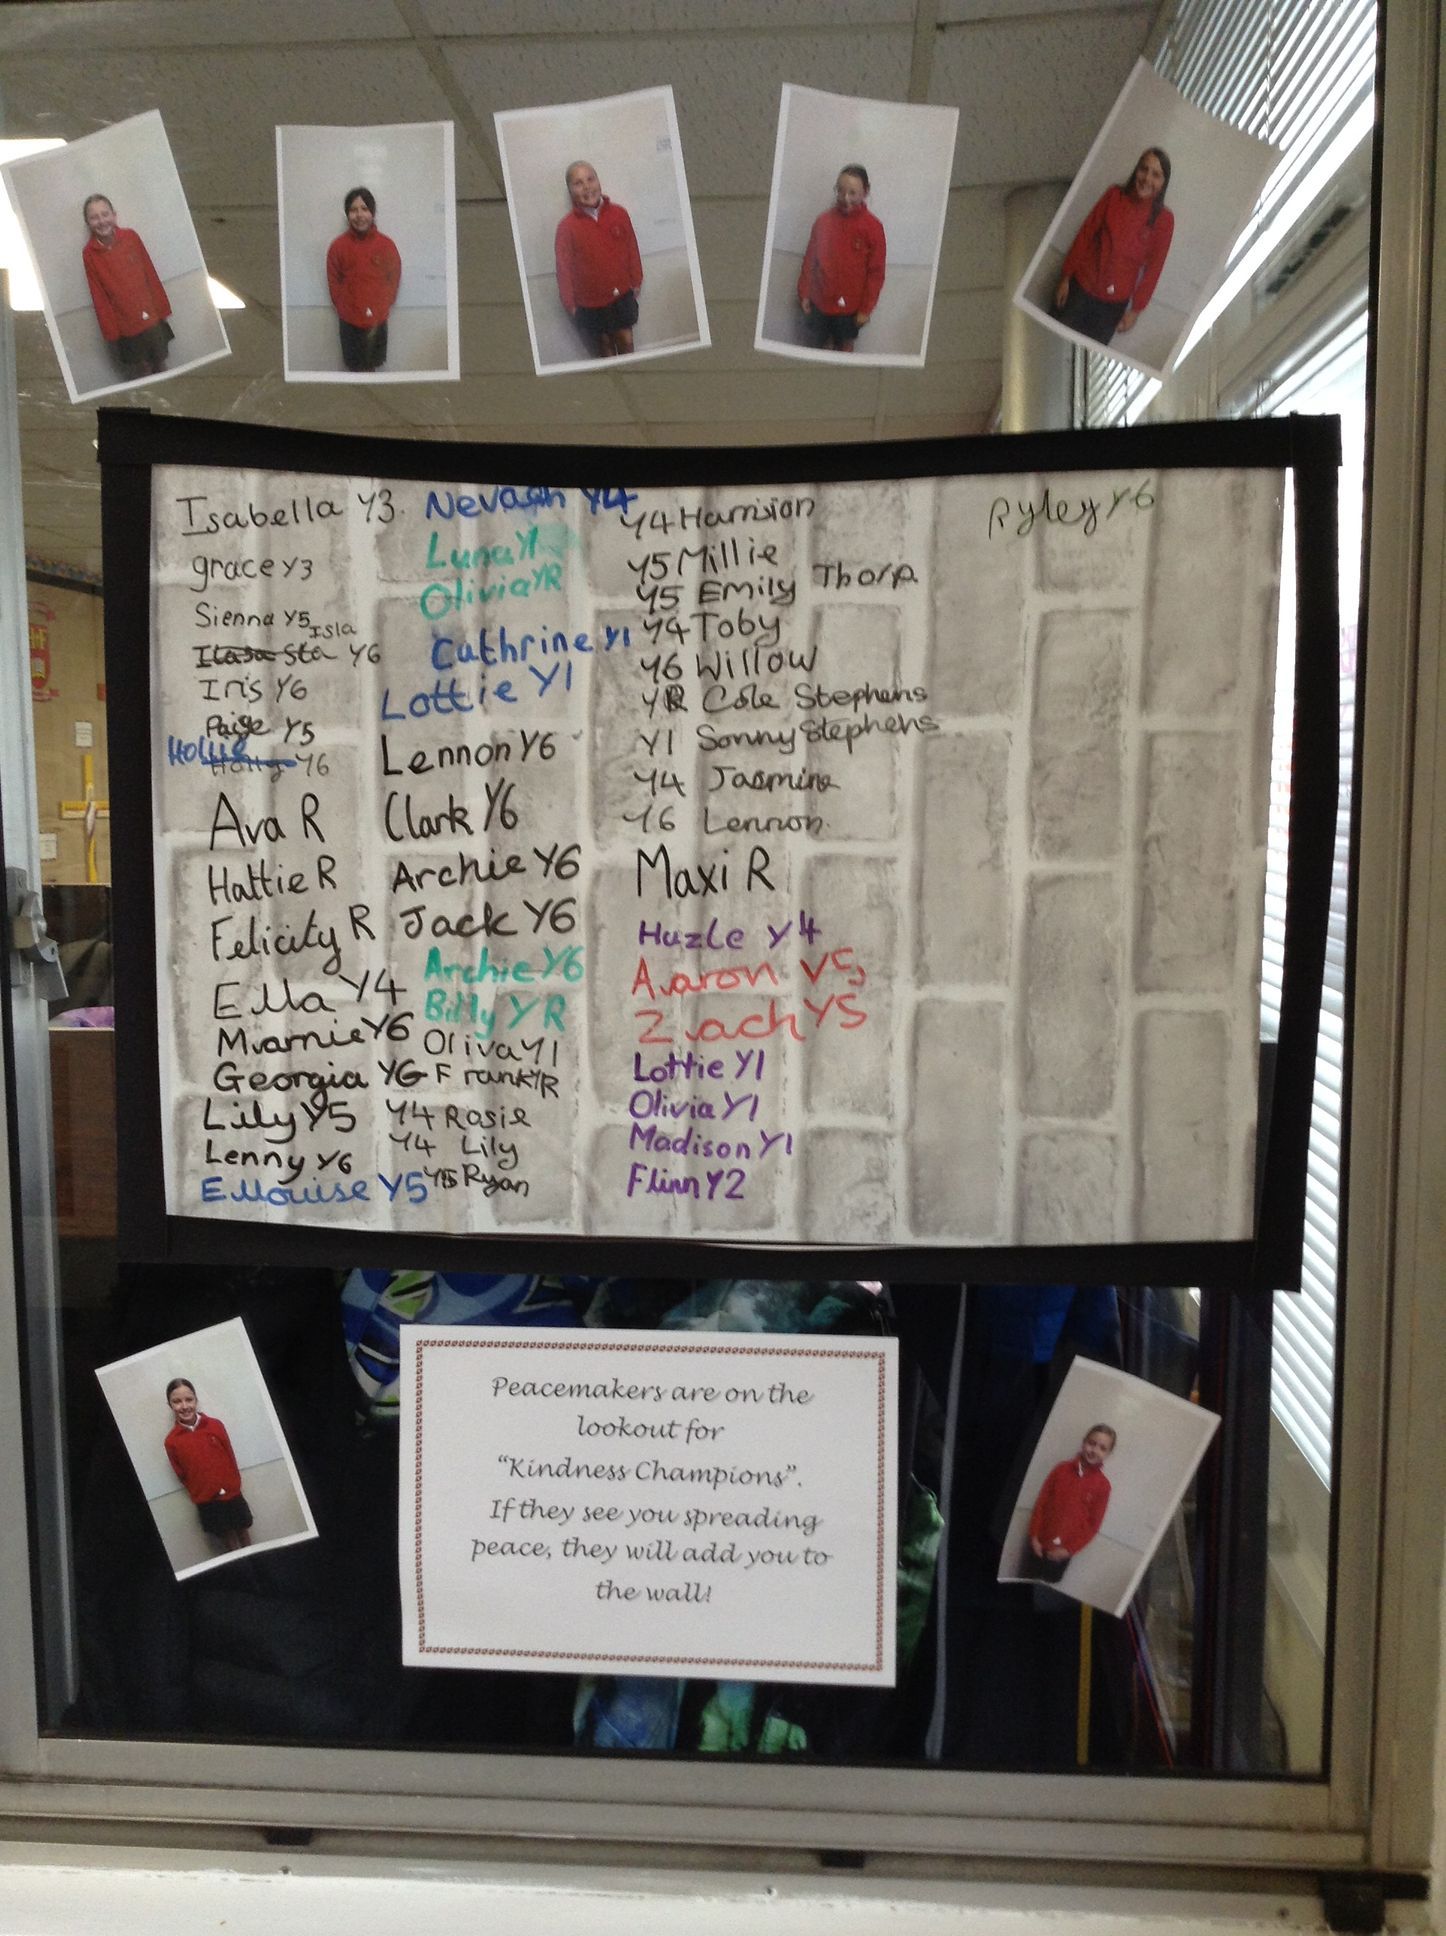 Isabella Y3
grace Y3
Sienna Y5
Isla
Y6
Iris Y6
Paige Y5
Hollie
Holly Y6
Ava R
Hattie R
Felicity R
Ella Y4
Marnie Y6
Georgia Y6
Lily Y5
Lenny Y6
Ellouise Y5
Nevaeh Y4
Luna Y1
Olivia YR
Cathrine Y1
Lottie Y1
Lennon Y6
Clark Y6
Archie Y6
Jack Y6
Archie Y6
Billy YR
Oliva Y1
Frank YR
Y4 Rosie
Y4 Lily
Y5 Ryan
Y4 Harrision
Y5 Millie
Y5 Emily Thorp
Y4 Toby
Y6 Willow
YR Cole Stephens
Y1 Sonny Stephens
Y4 Jasmine
Y6 Lennon
Maxi R
Hazle Y4
Aaron Y5
Zach Y5
Lottie Y1
Olivia Y1
Madison Y1
Flinn Y2
Ryley Y6
Peacemakers are on the
lookout for
"Kindness Champions".
If they see you spreading
peace, they will add you to
the wall!